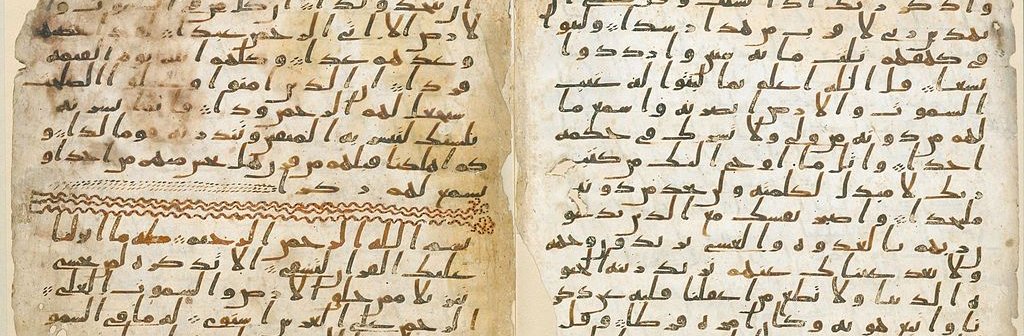 واذكر ربك اذا نسيت وقل عسى ان
يهدين ربي لاقرب من هذا رشدا ولبثوا
في كهفهم ثلث مائة سنين وازدادوا
تسعا قل الله اعلم بما لبثوا له غيب
السموت والارض ابصر به واسمع ما
لهم من دونه من ولي ولا يشرك في حكمه
احدا واتل ما اوحي اليك من كتب
ربك لا مبدل لكلمته ولن تجد من دونه
ملتحدا واصبر نفسك مع الذين يدعون
ربهم بالغدوة والعشي يريدون وجهه
ولا تعد عيناك عنهم تريد زينة الحيو
ة الدنيا ولا تطع من اغفلنا قلبه عن ذكر
نا واتبع هويه وكان امره فرطا وقل
ان يتخذ ولدا ان كل من في السموت و
الارض الا اتي الرحمن عبدا لقد احصيهم
وعدهم عدا وكلهم اتيه يوم القيمة
فردا ان الذين امنوا وعملوا الصلحت
سيجعل لهم الرحمن ودا فانما يسرنه
بلسنك لتبشر به المتقين وتنذر به قوما لدا و
كم اهلكنا قبلهم من قرن هل تحس منهم من احد او
تسمع لهم ركزا
بسم الله الرحمن الرحيم طه ما انزلنا
عليك القران لتشقى الا تذكرة لمن يخشى
تنزيلا ممن خلق الارض والسموت العلى
الرحمن على العرش استوى له ما في السمو